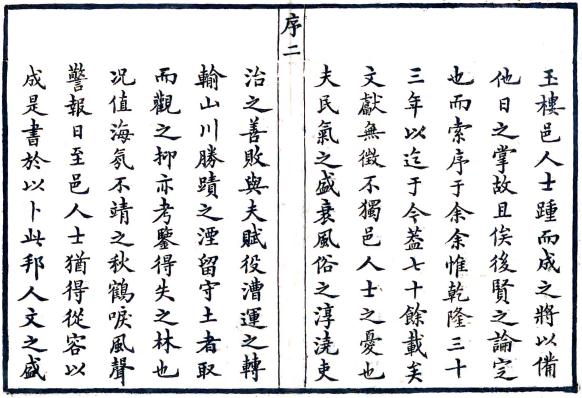 玉樓邑人士踵而成之將以備
他日之掌故且俟後賢之論定
也而索序于余余惟乾隆三十
三年以迄于今葢七十餘載矣
文獻無徵不獨邑人士之憂也
夫民氣之盛衰風俗之淳澆吏
序二
治之善敗與夫賦役漕運之轉
輸山川勝蹟之湮留守土者取
而觀之抑亦考鑒得失之林也
況值海氛不靖之秋鶴唳風聲
警報日至邑人士猶得從容以
成是書於以卜此邦人文之盛